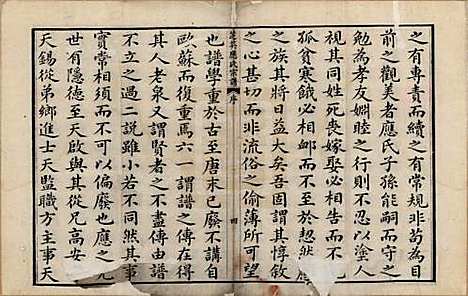 之有專責而續之有常規非苟為目
前之觀美者應氏子孫能嗣而守之
將見孝友媚睦之行則不忍以塗人
視其同姓死喪嫁娶必相告而不
孤貧寒餓必相卹而不至於恝然應
之族其將日益大矣吾固謂其惇敘
之心甚切而非流俗之偷薄所可望
芝英應氏宗譜
序
四
也譜學重於古至唐末已廢不講自
歐蘇而復重焉六一謂譜之傳在得
其人老泉又謂賢者之不盡傳由譜
不立之過二說雖小若不同至於其
實常相須而不可以偏廢也應之先
世有隱德至天啟與其兄高安
天錫從弟鄉進士天監職方主事天